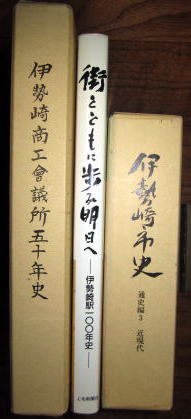 伊勢崎商工會議所五十年史
街とともに歩み明日へ
──伊勢崎駅一〇〇年史──
伊勢崎市史
通史編3 近現代